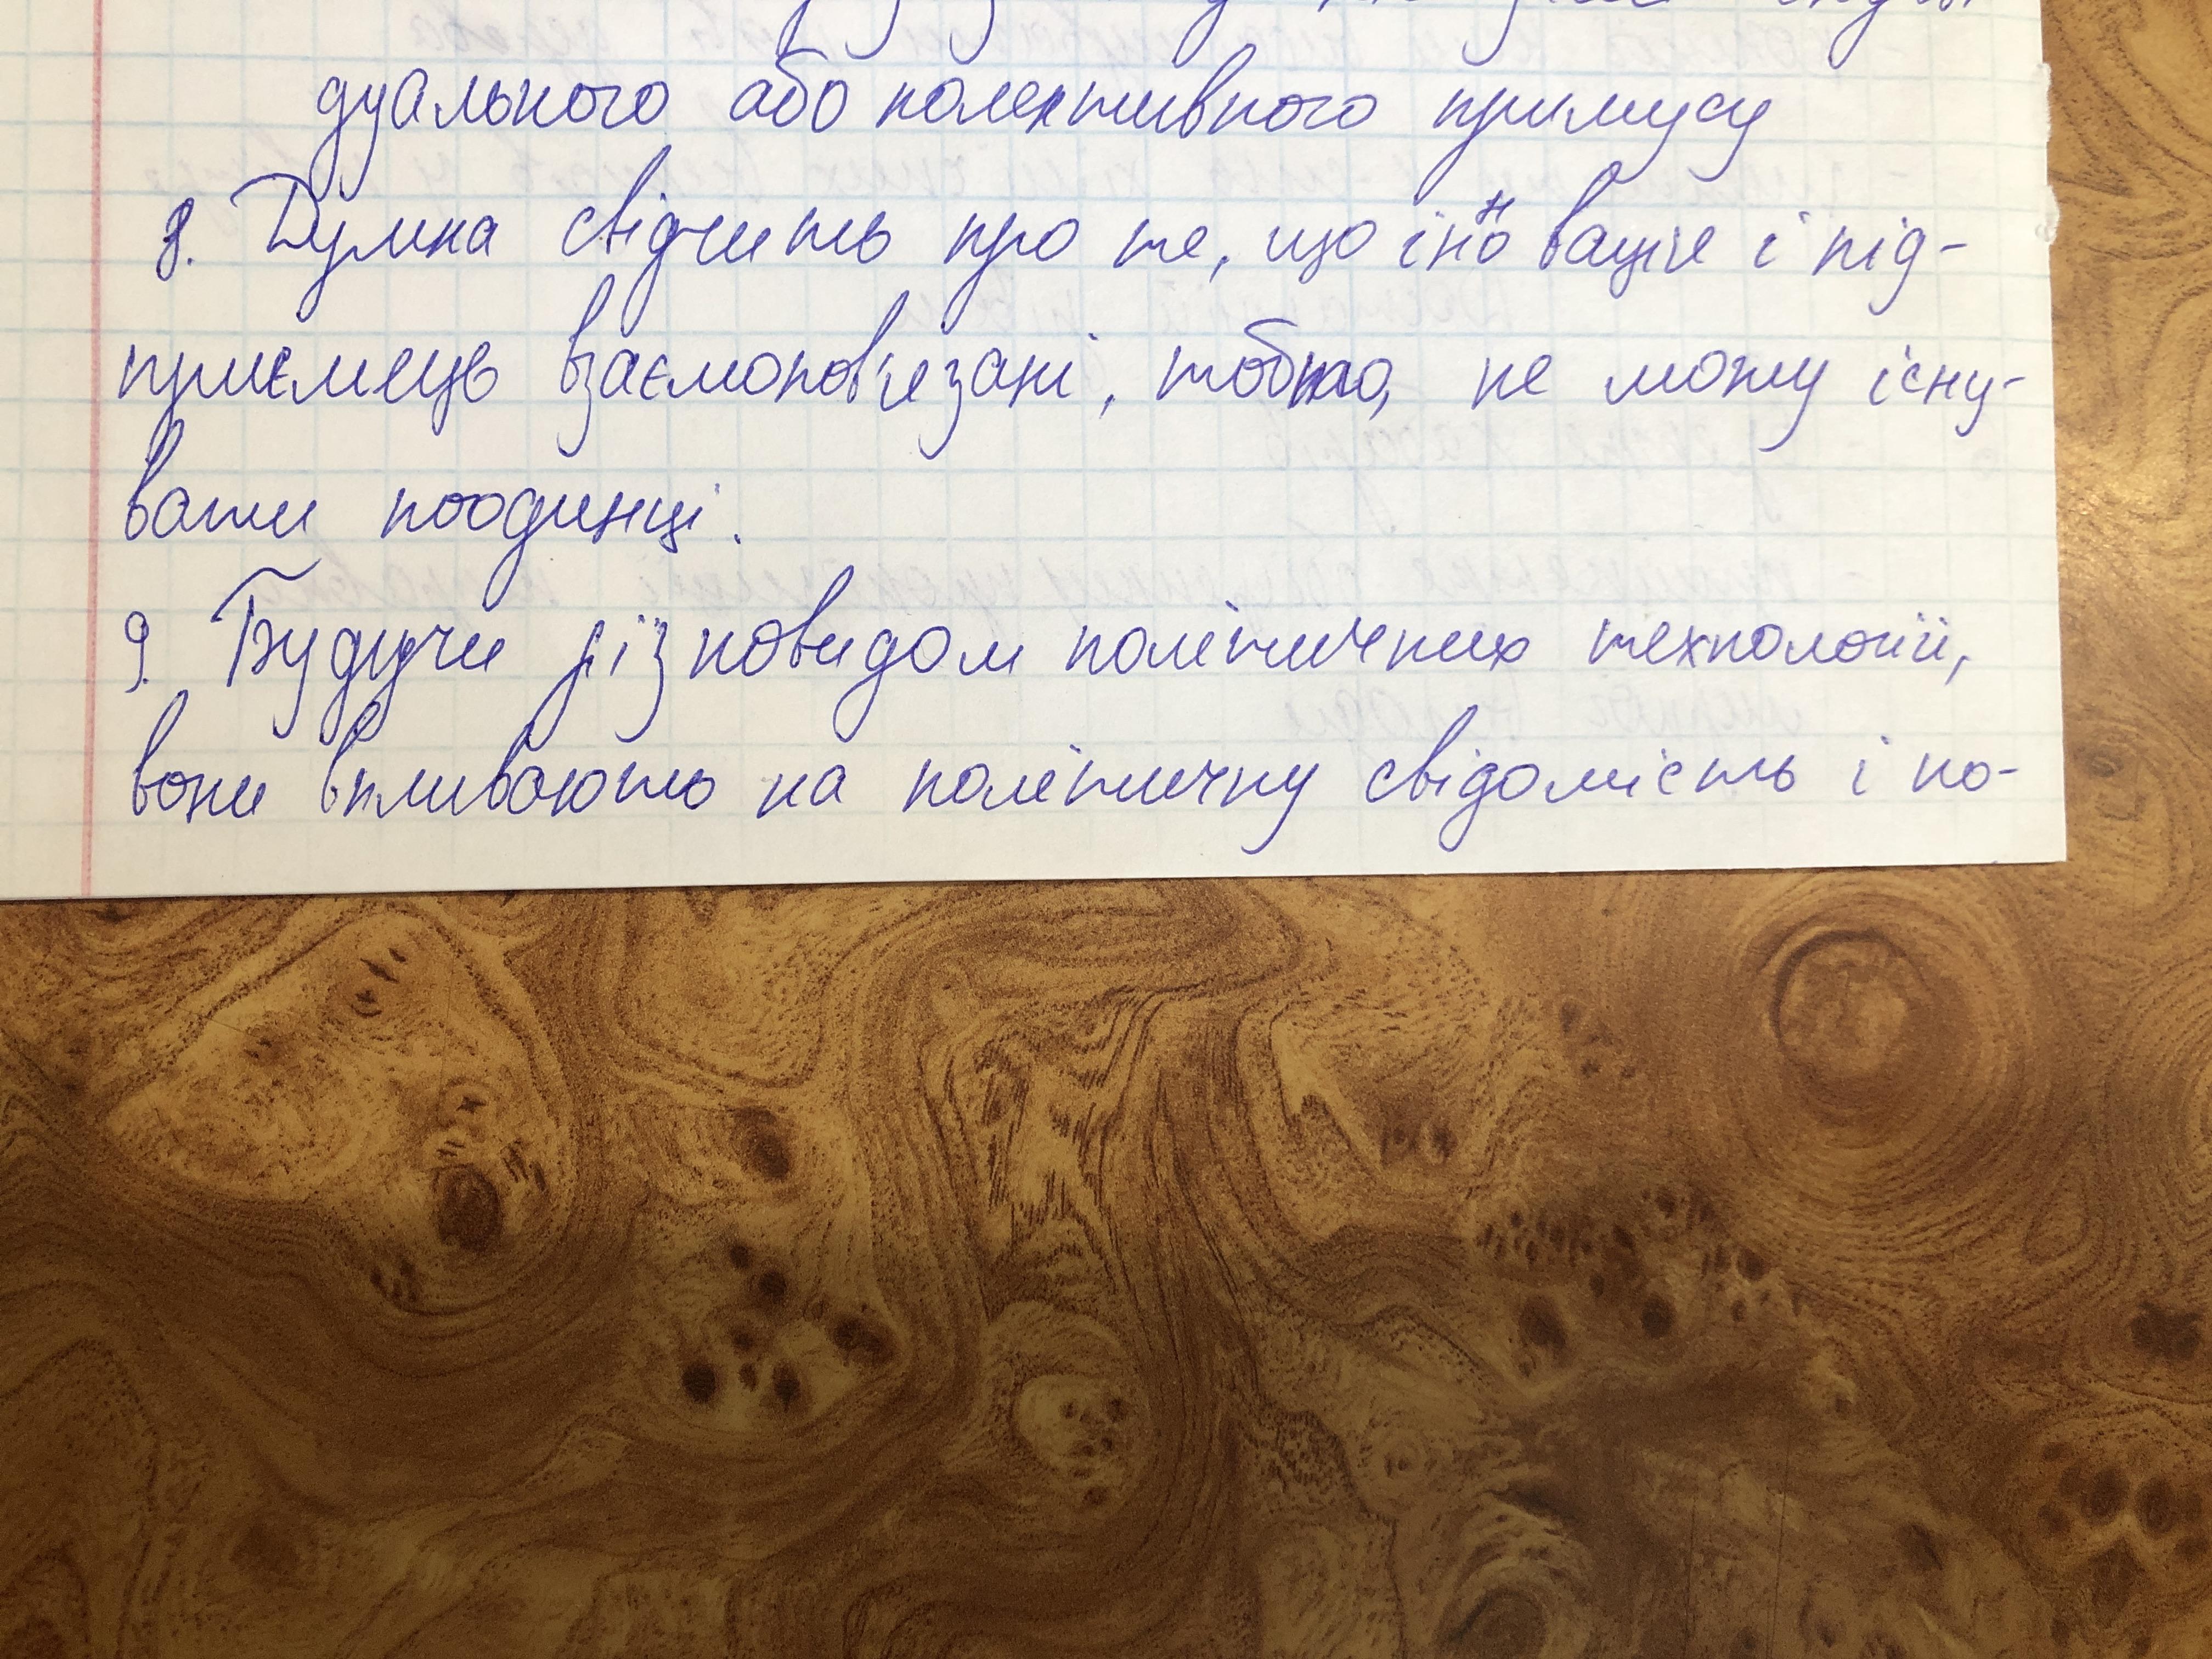 дуального або колективного примусу
8. Думка свідчить про те, що інновація і під-
приємець взаємопов'язані, тобто, не можу існу-
вати поодинці.
9. Будучи різновидом політичних технологій,
вони впливають на політичну свідомість і по-